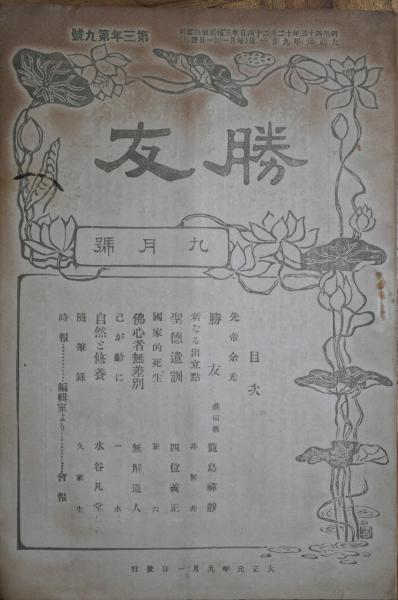 第三年第九號
明治四十三年十二月二十四日第三種郵便物認可
大正元年九月一日發行 每月一回一日發行
勝友
九月號
目次
先帝余光
勝友 龍島禪靜
新なる出立點 非無非
聖德遺訓 四位義正
國家的死生
佛心者無差別 無解道人
己が齡に 一水
自然と修養 水谷凡堂
隨筆錄 久家生
時報 編輯室より 會報
大正元年九月一日發行